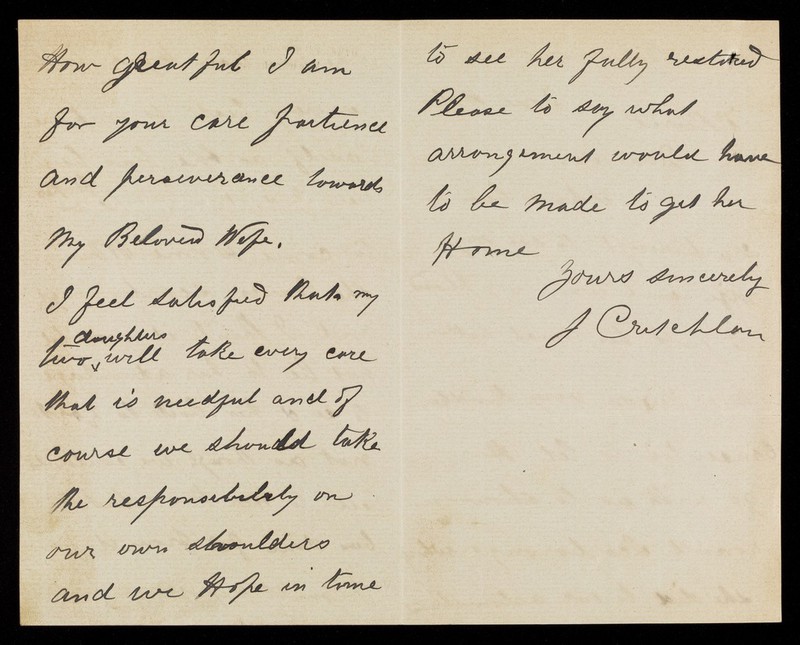 How greatful I am
for your care partience
and perseverance towards
My Beloved Wife.
I feel satisfied that my
daughters
two will take every care
that is needful and of
course we should take
the responsibility on
our own shoulders
and we Hope in time
to see her fully restored
Please to say what
arrangement would have
to be made to get her
Home
Yours sincerely
J Critchlow